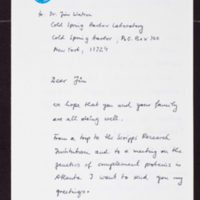 to Dr. Jim Watson
Cold Spring Harbor Laboratory
Cold Spring Harbor, P.O. Box 100
New York, 11724
Dear Jim
we hope that you and your family
are all doing well.
From a trip to the Scripps Research
Institution and to a meeting on the
genetics of complement proteins in
Atlanta I want to send you my
greetings.